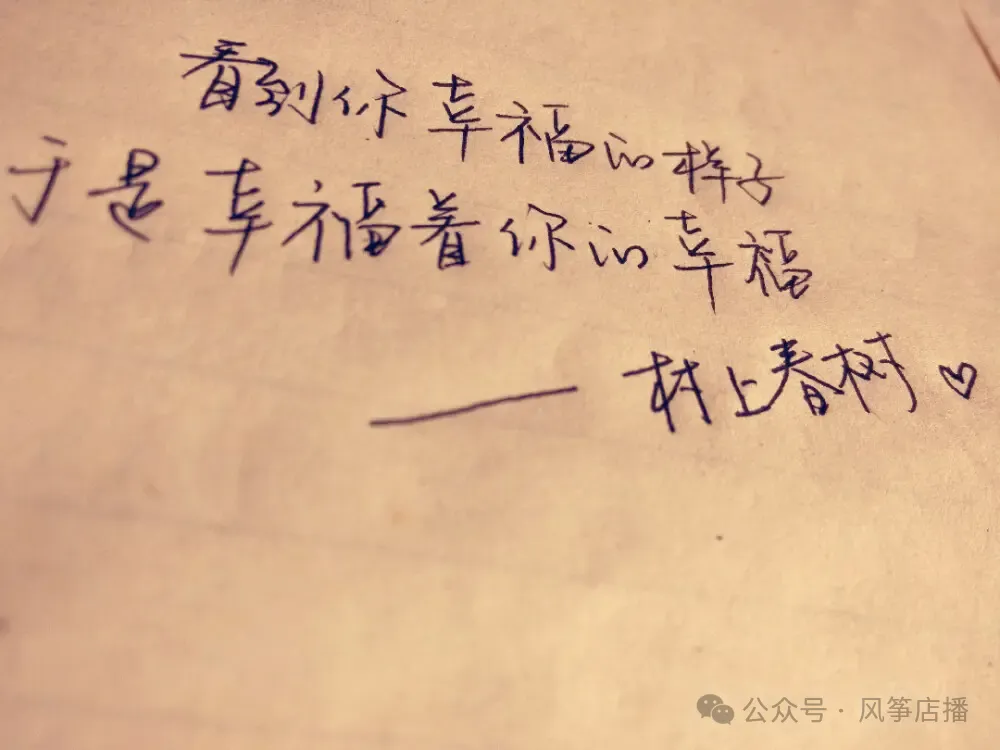 看到你幸福的样子
于是幸福着你的幸福
—— 村上春树♡
公众号 · 风筝店播